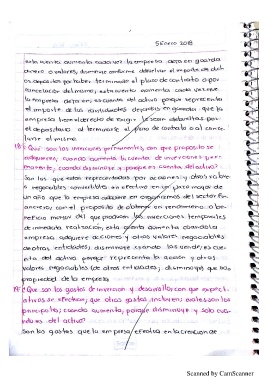 5 Enero 2018
esta cuenta aumenta cada vez la empresa deja en guarda
dinero o valores, disminuye conforme devolver el importe de dich
os depositos por haber terminado el plazo de contrato o por
cancelación del mismo, esta cuenta aumenta cada vez que
la empresa es cuenta del activo porque representa
el importe de las cantidades depositadas en guarda, que la
empresa tiene el derecho de exigir le sean devueltas por
el depositario al terminarse el plazo de contrato o al cance
larse el mismo.
18 ¿Que son las inversiones permanentes, con que proposito se
adquieren, cuando aumenta la cuenta de inversiones perm
anente, cuando disminuye y porque es cuenta del activo?
Son las que estan representadas por acciones y otros valore
s negociables convertibles en efectivo en un plazo mayor de
un año que la empresa adquiere en organismos del sector fin
anciero, con el proposito de obtener un rendimiento o be
neficio mayor del que producen las inversiones temporales
de inmediata realización, esta cuenta aumenta cuando la
empresa adquiere acciones y otros valores negociables
de otras entidades, disminuye cuando los vende, es cuen
ta del activo porque representa la acción y otros
valores negociables de otras entidades, disminuye que son
propiedad de la empresa.
19 ¿Que son los gastos de inversion y desarrollo con que expect
ativas se efectuan, que otros gastos incluyen, cuales son los
principales, cuando aumenta, porque disminuye y son cue
ntas del activo?
Son los gastos que la empresa efectua en la creación de
Scanned by CamScanner